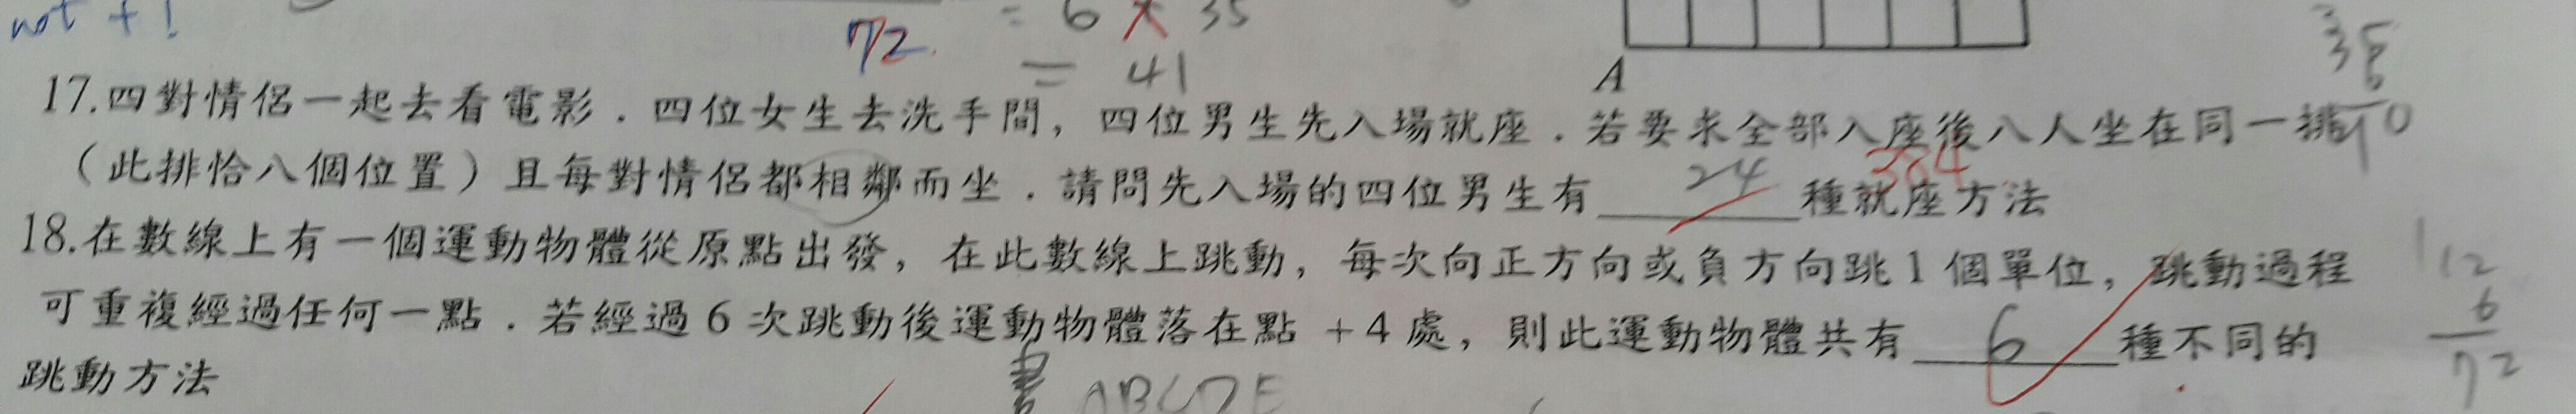 not + !
72
= 6 × 35
= 41
A
35
6
17.四對情侶一起去看電影．四位女生去洗手間，四位男生先入場就座．若要求全部入座後八人坐在同一排
（此排恰八個位置）且每對情侶都相鄰而坐．請問先入場的四位男生有 24 384 種就座方法
18.在數線上有一個運動物體從原點出發，在此數線上跳動，每次向正方向或負方向跳1個單位，跳動過程
可重複經過任何一點．若經過6次跳動後運動物體落在點 +4處，則此運動物體共有 6 種不同的
跳動方法
12
6
72
ABCDE